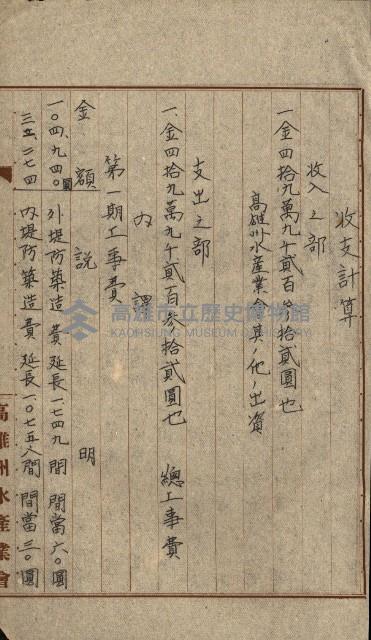 收支計算
收入之部
一金四拾九萬九千貳百參拾貳圓也
高雄州水産業會其ノ他ノ出資
支出之部
一、金四拾九萬九千貳百參拾貳圓也 總工事費
內譯
第一期工事費
金額 說明
一〇四、九四〇圓 外堤防築造費 延長一七四九間 間當六〇圓
三五、二七四 內堤防築造費 延長一〇七五八間 間當三〇圓
高雄州水產業會
高雄市立歷史博物館
KAOHSIUNG MUSEUM OF HISTORY